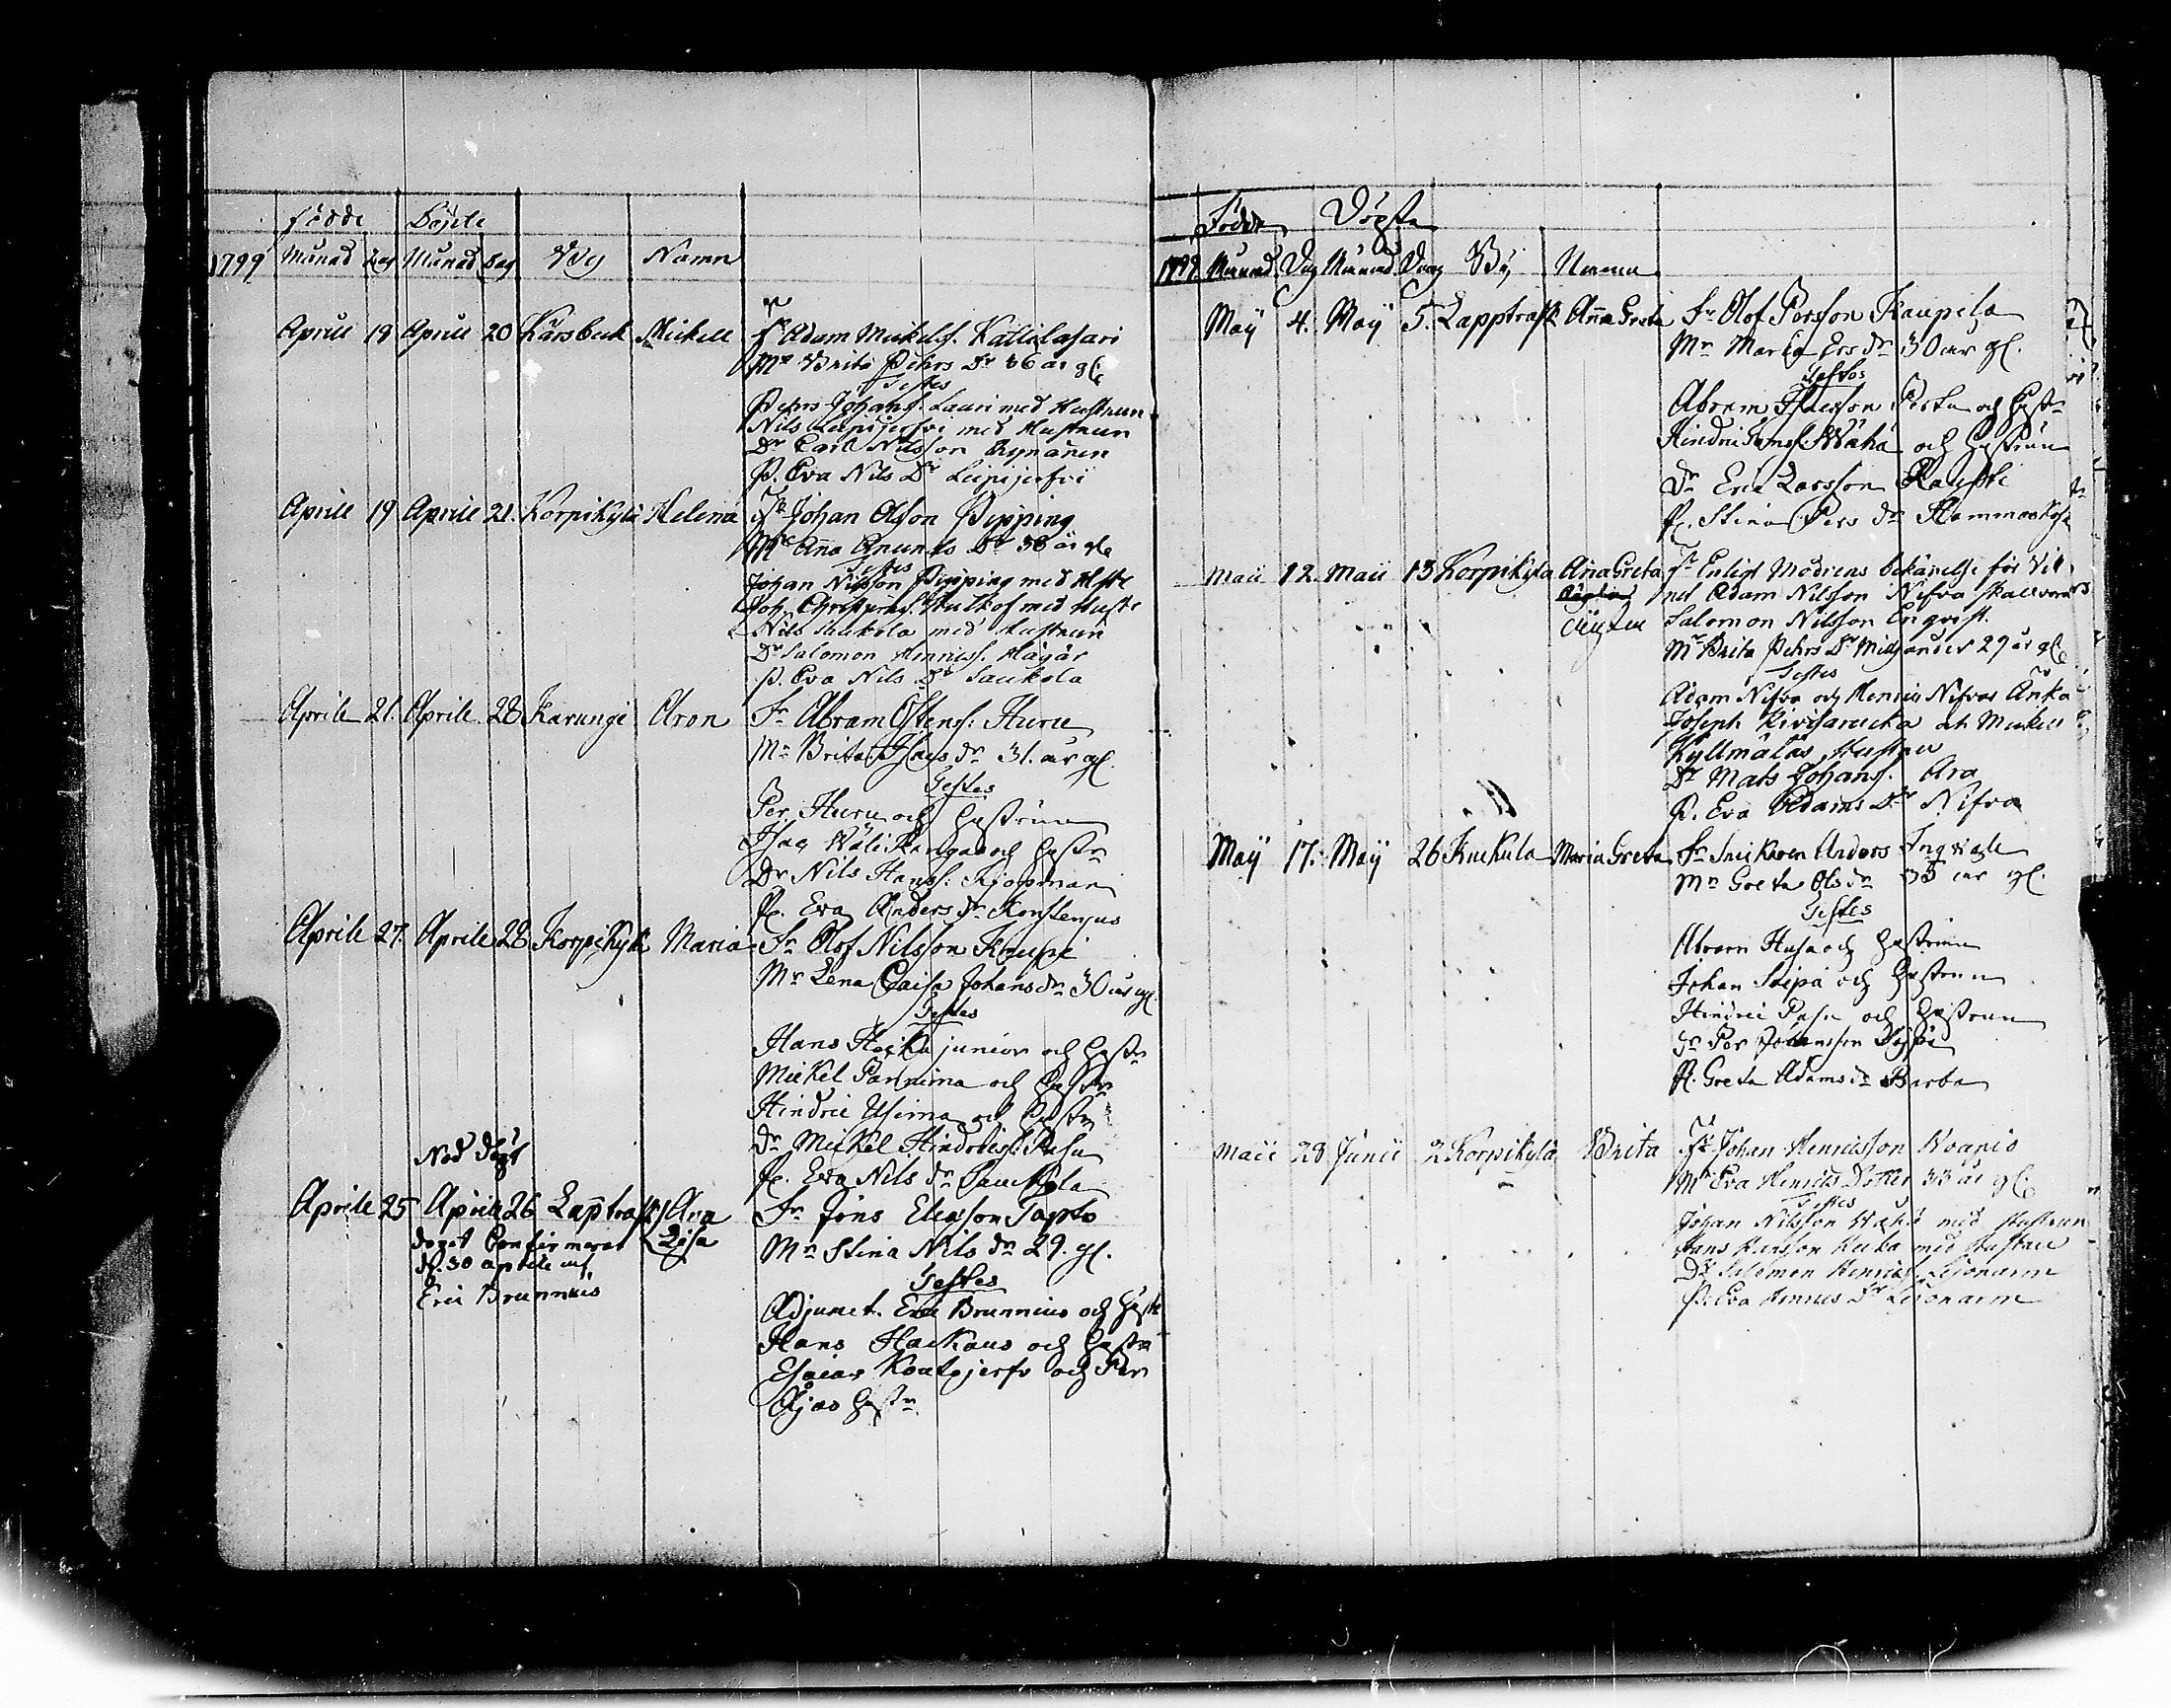 födde Döpte
1799 Månad Dag Månad Dag By Namn
Aprill 19 Aprill 20 Karsbeck Mickell Fr Adam Mickelss. Kallilasari
Mr Brita Pehrs Dr 36 år gl.
Testes
Pehrs Johans. Lauri med Hustrun
Nils Leipijerfvi med Hustrun
Dr Carl Nilsson Rynänen
P. Eva Nils Dr Leipijerfvi
Aprill 19 Aprill 21. Korpikylä Helena Fr Johan Olsson Pipping
Mr Aña Anunds Dr 38 år gle
Testes
Johan Nilsson Pipping med Hste
Joh. Christiers. Stulkof med Huste
Nils Saukola med Hustrun
Dr Salomon Henricss. Hägår
P. Eva Nils Dr Saukola
Aprile 21. Aprile 28 Karungi Aron Fr Abram Ostens: Huru
Mr Brita Isacs dr 31. år gl.
Testes
Per Huru och Hustrun
Isac Wälikangas och Hustr
Dr Nils Hanss: Kjöpman
P. Eva Anders dr Konstenjus
Aprile 27. Aprile 28 Korpikylä Maria Fr Olof Nilsson Kaupi
Mr Lena Caisa Johans dr 30 år gl.
Testes
Hans Heika junior och Hustr
Mickel Pannima och Hustr
Hindric Usima och Hustr
Dr Mickel Hindricss: Pasu
P. Eva Nils dr Sauckola
Nöd döpt
Aprile 25 Aprile 26 Lapträsk Ana Fr Jöns Eliasson Tapto
dopet Confirmerat Lisa Mr Stina Nils dr 29. gl.
d. 30 aprile af
Eric Brunnius
Testes
Adjunct. Eric Brunnius och Hustr
Hans Hackaus och Hustr
Esaias Kontojerfv och Per
Ajas Hustr
Födde Döpte
1799 Månad Dag Månad Dag By Namn
Maÿ 4. Maÿ 5. Lappträsk Aña Greta Fr Olof Persson Kaupila
Mr Maria Ers dr 30 år gl.
Testes
Abram Isacsson och Hustr
Hindric Wähä och Hustrun
Dr Eric Larsson Kauppi
P. Stina Pers dr
Maii 12. Maii 13 Korpikylä Aña Greta Fr Enligt Modrens bekänelse för Vit
oägta nen Adam Nilsson Nifva skall vara
Salomon Nilsson Engqvist.
Mr Brita Pehrs Dr 29 år gl.
Testes
Adam Nifva och Henric Nifvas Änka
Joseph Kivijarecka och Mickel
Kyllmälas Hustru
Dr Mats Johans. Ara
P. Eva Adams Dr Nifva
Maÿ 17. Maÿ 26 Kuckula Maria Greta Fr Snickaren Anders Ingvigle
Mr Greta Ols dr 33 år gl.
Testes
Abram Husa och Hustrun
Johan Seipä och Hustrun
Hindric Pasu och Hustrun
Dr Per Johansson
P. Greta Adams dr Barba
Maii 28 Junii 2 Korpikylä Brita Fr Johan Henricsson Noapio
Mr Eva Henrics Dotter 33 år gl.
Testes
Johan Nilsson Wähä med Hustrun
Hans Hansson Keika med Hustru
Dr Salomon Henricss. Lejonarm
P. Eva Henrics Dr Lejonarm